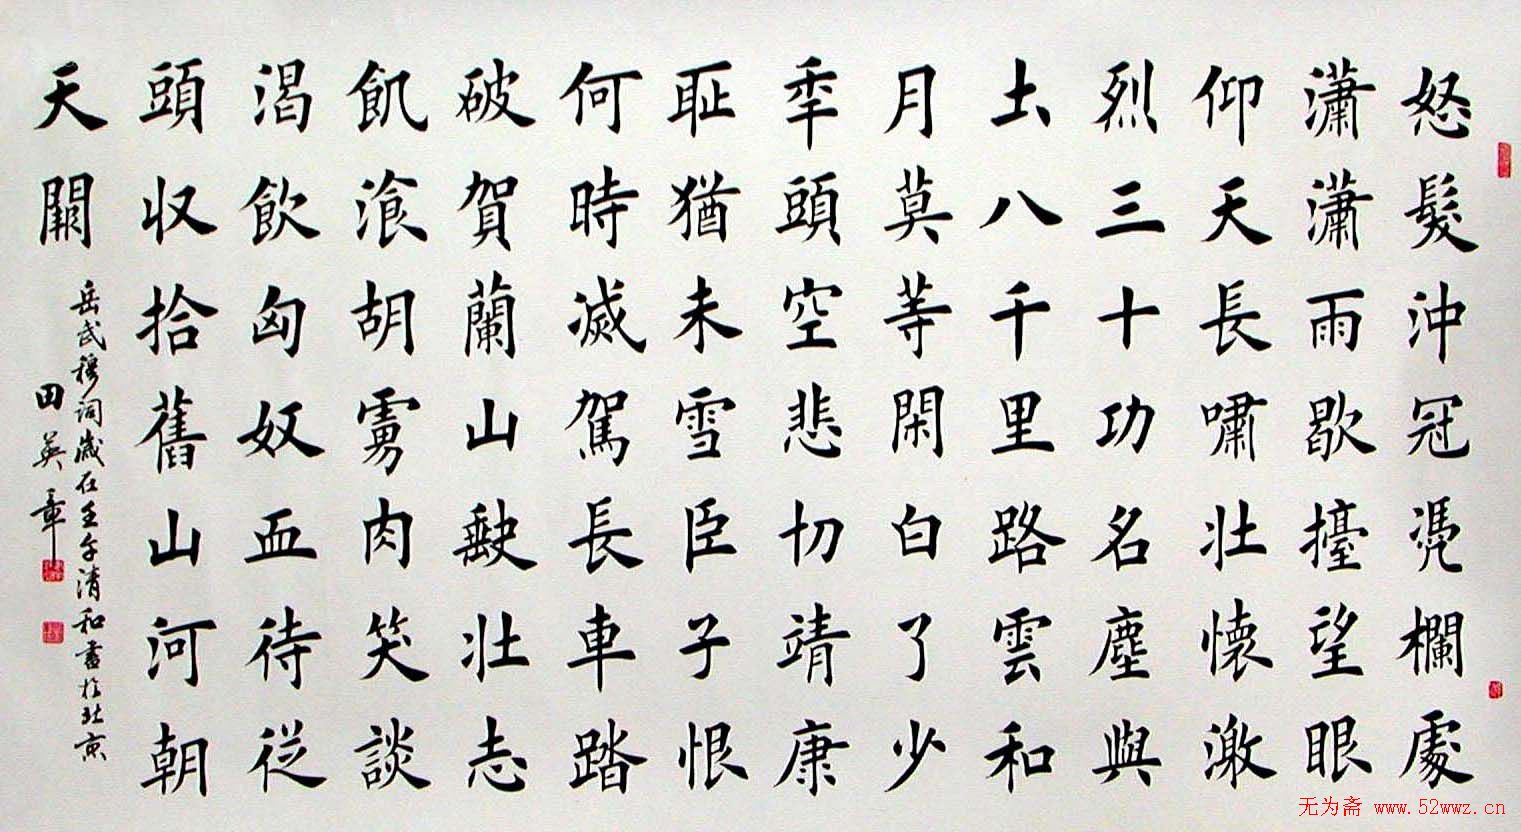 怒髮沖冠凴欄處
瀟瀟雨歇擡望眼
仰天長嘯壯懷激
烈三十功名塵與
土八千里路雲和
月莫等閑白了少
年頭空悲切靖康
耻猶未雪臣子恨
何時滅駕長車踏
破賀蘭山缺壯志
飢湌胡虜肉笑談
渴飲匈奴血待從
頭收拾舊山河朝
天闕
岳武穆詞歲在壬午清和書於北京
田英章
无为斋 www.52wwz.cn